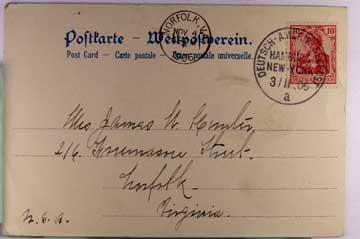 Postkarte – Weltpostverein.
Post Card – Carte postale – postale universelle.
NORFOLK, VA.
NOV
1906
DEUTSCH-AMERIK.
HAMBURG
NEW-YORK
3/11 06
a
10 10
Mrs James W. Hunter
216. Freemason Street.
Norfolk
Virginia.
U.S.A.